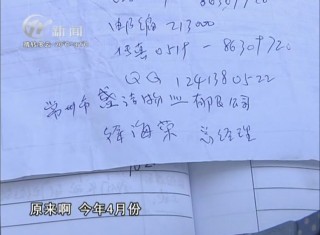 新闻
邮编 213000
传真 0519-86307320
QQ 1241380522
常州市盛洁物业有限公司
徐海荣 总经理
原来啊 今年4月份